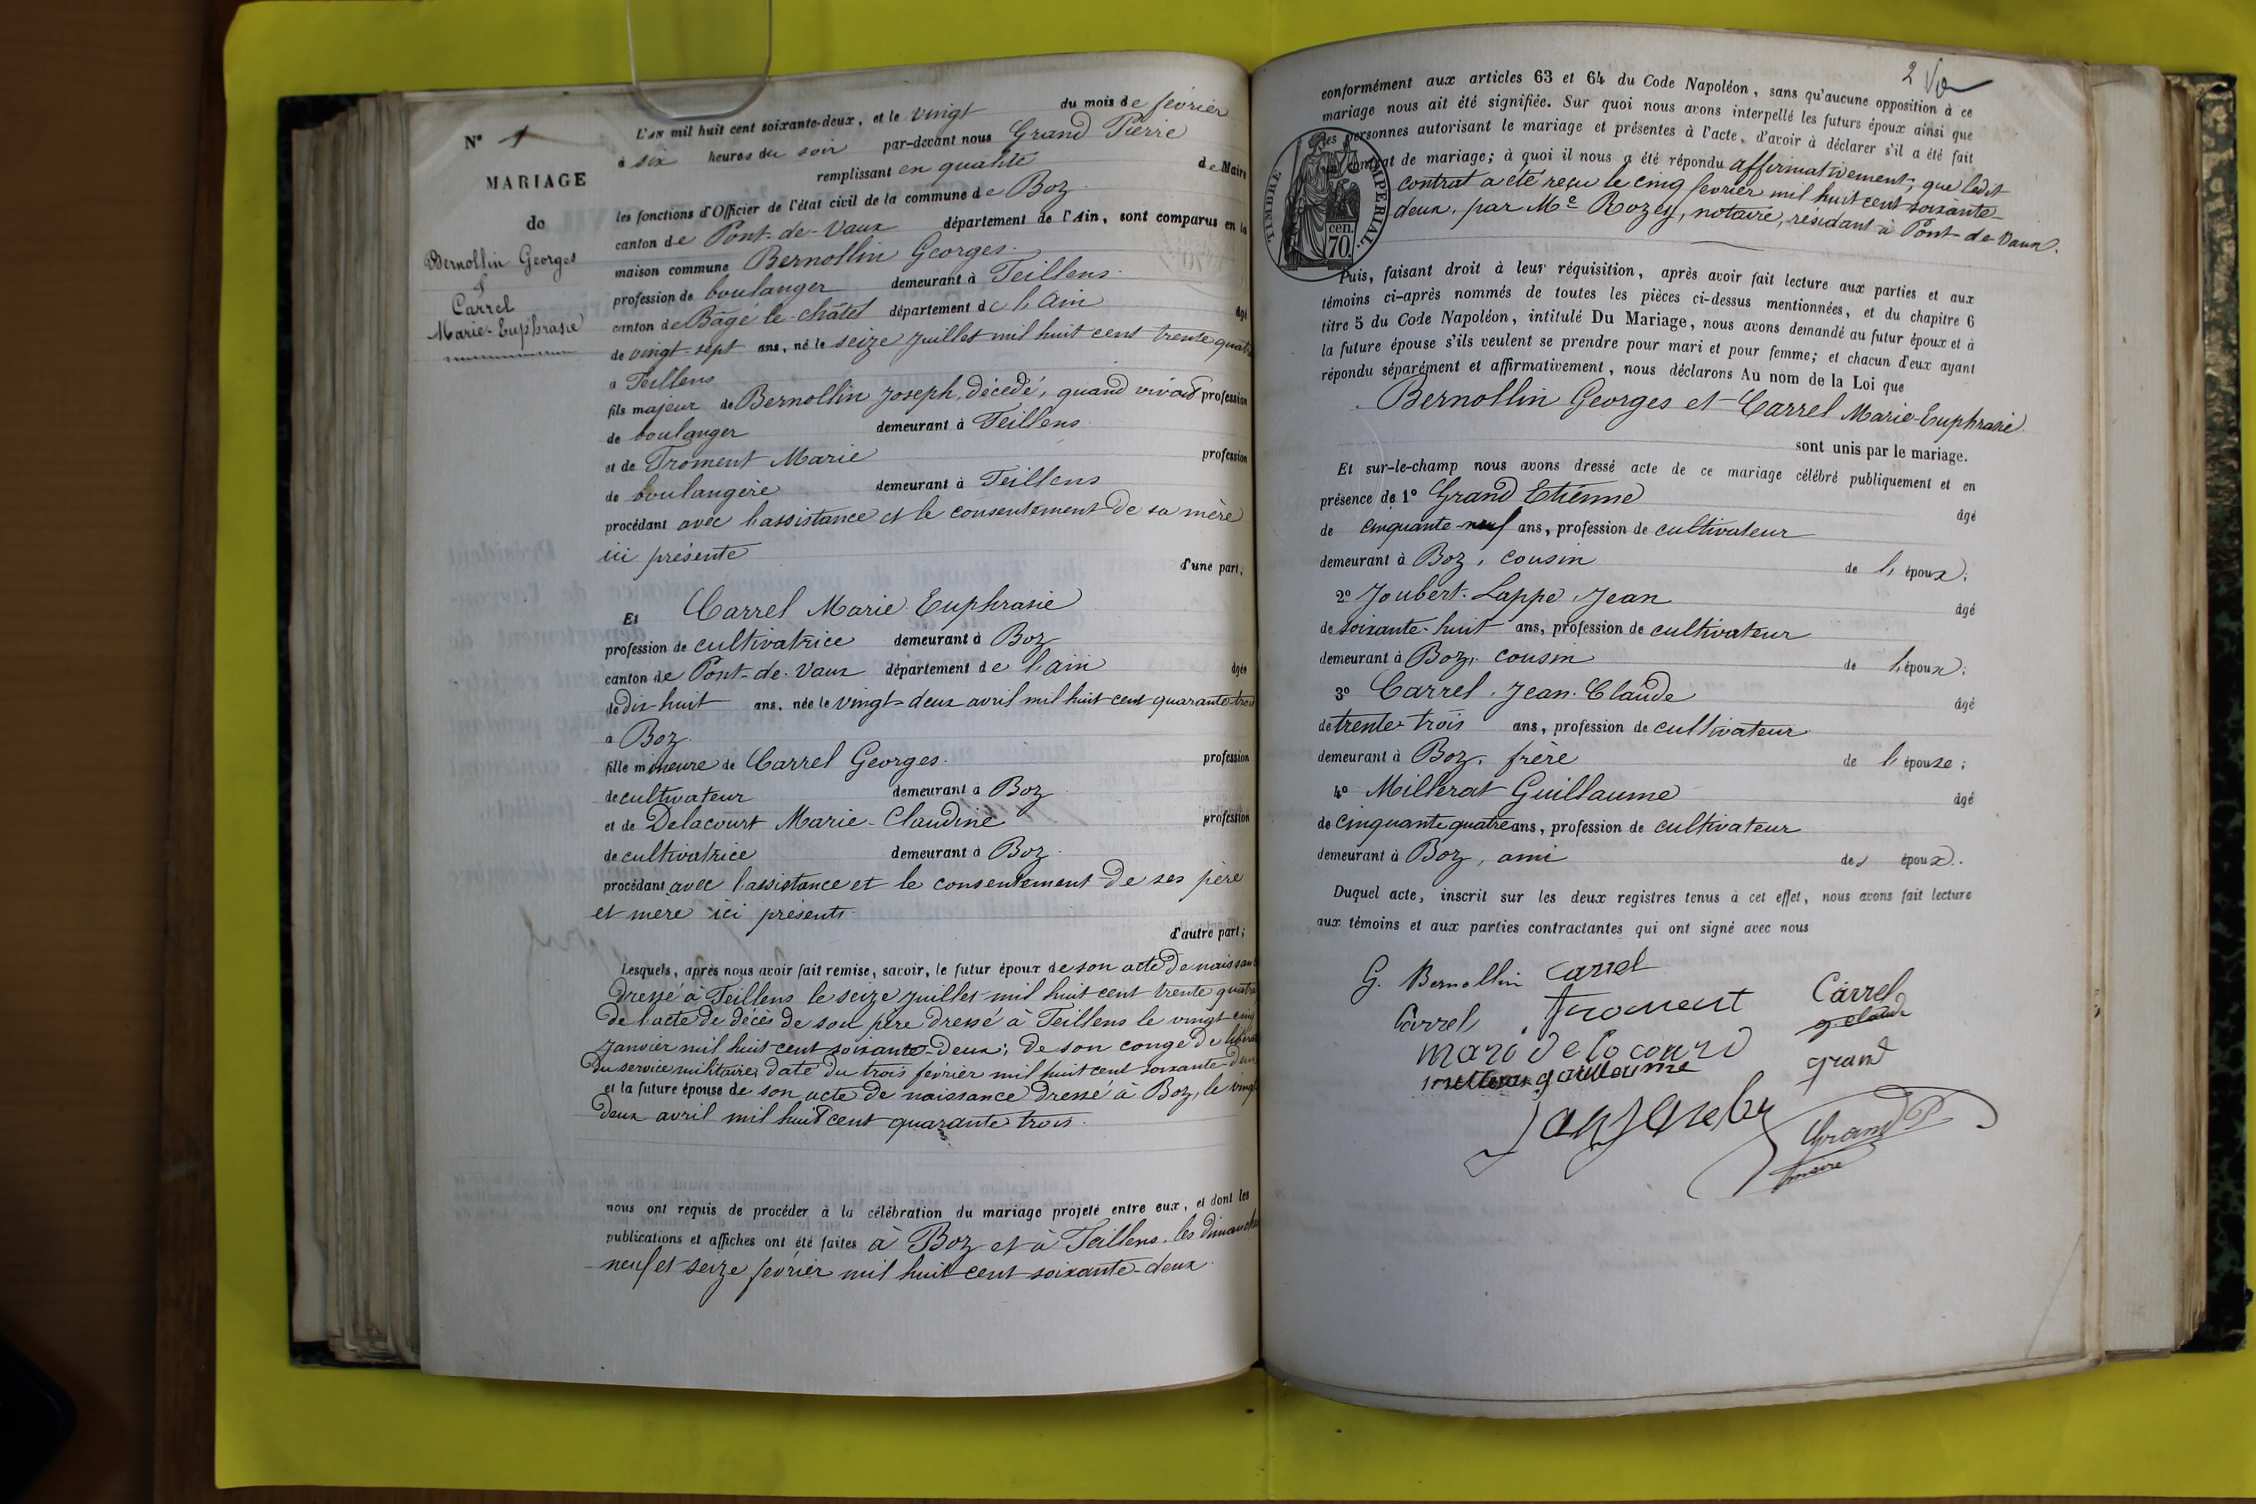 N° 1
MARIAGE
de
Bernollin Georges
&
Carrel
Marie-Euphrasie
L'an mil huit cent soixante-deux, et le vingt du mois de février
à six heures du soir par-devant nous Grand Pierre
remplissant en qualité de Maire
les fonctions d'Officier de l'état civil de la commune de Boz
canton de Pont-de-Vaux département de l'Ain, sont comparus en la
maison commune Bernollin Georges
profession de boulanger demeurant à Feillens
canton de Bâgé le châtel département de l'Ain âgé
de vingt-sept ans, né le seize Juillet mil huit cent trente quatre
à Feillens
fils majeur de Bernollin Joseph, décédé, quand vivait profession
de boulanger demeurant à Feillens
et de Froment Marie profession
de boulangère demeurant à Feillens
procédant avec l'assistance et le consentement de sa mère
ici présente
d'une part;
Et Carrel Marie Euphrasie
profession de cultivatrice demeurant à Boz
canton de Pont-de-Vaux département de l'Ain âgée
de dix-huit ans, née le vingt-deux avril mil huit cent quarante trois
à Boz
fille mineure de Carrel Georges profession
de cultivateur demeurant à Boz
et de Delacourt Marie-Claudine profession
de cultivatrice demeurant à Boz
procédant avec l'assistance et le consentement de ses père
et mère ici présents
d'autre part;
Lesquels, après nous avoir fait remise, savoir, le futur époux de son acte de naissance
dressé à Feillens le seize Juillet mil huit cent trente quatre
de l'acte de décès de son père dressé à Feillens le vingt cinq
janvier mil huit cent soixante-deux; de son congé de libération
du service militaire daté du trois février mil huit cent soixante deux
et la future épouse de son acte de naissance dressé à Boz, le vingt
deux avril mil huit cent quarante trois.
nous ont requis de procéder à la célébration du mariage projeté entre eux, et dont les
publications et affiches ont été faites à Boz et à Feillens, les dimanches
neuf et seize février mil huit cent soixante-deux
2
conformément aux articles 63 et 64 du Code Napoléon, sans qu'aucune opposition à ce
mariage nous ait été signifiée. Sur quoi nous avons interpellé les futurs époux ainsi que
les personnes autorisant le mariage et présentes à l'acte, d'avoir à déclarer s'il a été fait
un contrat de mariage; à quoi il nous a été répondu affirmativement; que ledit
contrat a été reçu le cinq février mil huit cent soixante-
deux, par Me Rozey, notaire, résidant à Pont-de-Vaux.
TIMBRE IMPÉRIAL
70 cen.
Puis, faisant droit à leur réquisition, après avoir fait lecture aux parties et aux
témoins ci-après nommés de toutes les pièces ci-dessus mentionnées, et du chapitre 6
titre 5 du Code Napoléon, intitulé Du Mariage, nous avons demandé au futur époux et à
la future épouse s'ils veulent se prendre pour mari et pour femme; et chacun d'eux ayant
répondu séparément et affirmativement, nous déclarons Au nom de la Loi que
Bernollin Georges et Carrel Marie-Euphrasie
sont unis par le mariage.
Et sur-le-champ nous avons dressé acte de ce mariage célébré publiquement et en
présence de 1° Grand Etienne âgé
de cinquante-neuf ans, profession de cultivateur
demeurant à Boz, cousin de l'époux;
2° Joubert-Lappe Jean âgé
de soixante-huit ans, profession de cultivateur
demeurant à Boz, cousin de l'époux;
3° Carrel Jean-Claude âgé
de trente-trois ans, profession de cultivateur
demeurant à Boz, frère de l'épouse;
4° Millerat Guillaume âgé
de cinquante quatre ans, profession de cultivateur
demeurant à Boz, ami des époux.
Duquel acte, inscrit sur les deux registres tenus à cet effet, nous avons fait lecture
aux témoins et aux parties contractantes qui ont signé avec nous
G. Bernollin Carrel
Carrel froment Carrel
j. claude
mari delacourd
millerat guilloume grand
Grand P
maire